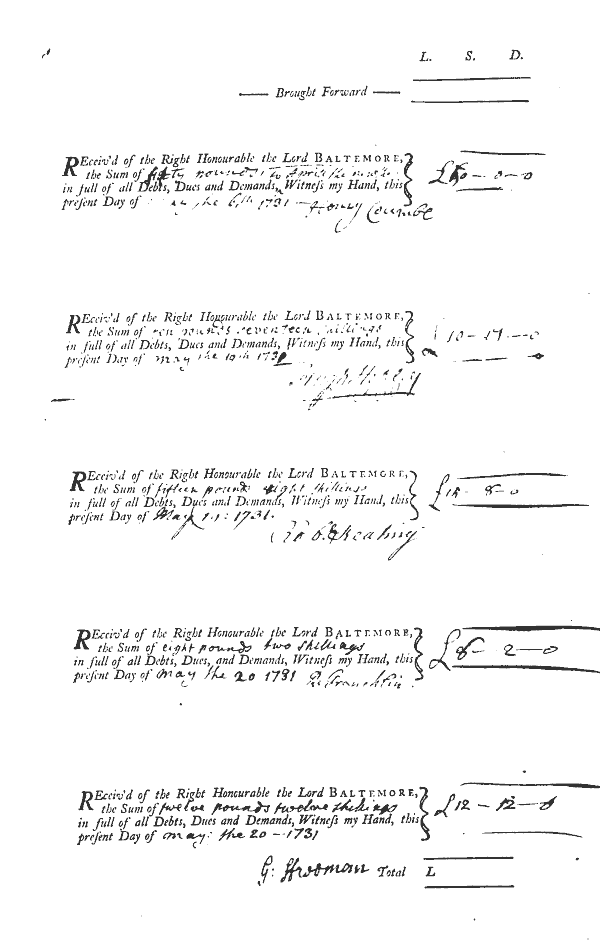 L. S. D.
Brought Forward
REceiv'd of the Right Honourable the Lord BALTEMORE,
the Sum of fifty pounds to April the £50-0-0
in full of all Debts, Dues and Demands, Witneſs my Hand, this
preſent Day of May the 6th 1731 Henry Coumbe
REceiv'd of the Right Honourable the Lord BALTEMORE,
the Sum of ten pounds seventeen shillings 10-17-0
in full of all Debts, Dues and Demands, Witneſs my Hand, this
preſent Day of May the 10th 1731
REceiv'd of the Right Honourable the Lord BALTEMORE,
the Sum of fifteen pounds eight shillings £15-8-0
in full of all Debts, Dues and Demands, Witneſs my Hand, this
preſent Day of May 11: 1731.
Keating
REceiv'd of the Right Honourable the Lord BALTEMORE,
the Sum of eight pounds two shillings £8-2-0
in full of all Debts, Dues, and Demands, Witneſs my Hand, this
preſent Day of May the 20 1731
REceiv'd of the Right Honourable the Lord BALTEMORE,
the Sum of twelve pounds twelve shillings £12-12-0
in full of all Debts, Dues and Demands, Witneſs my Hand, this
preſent Day of may: the 20-1731
G: Total L